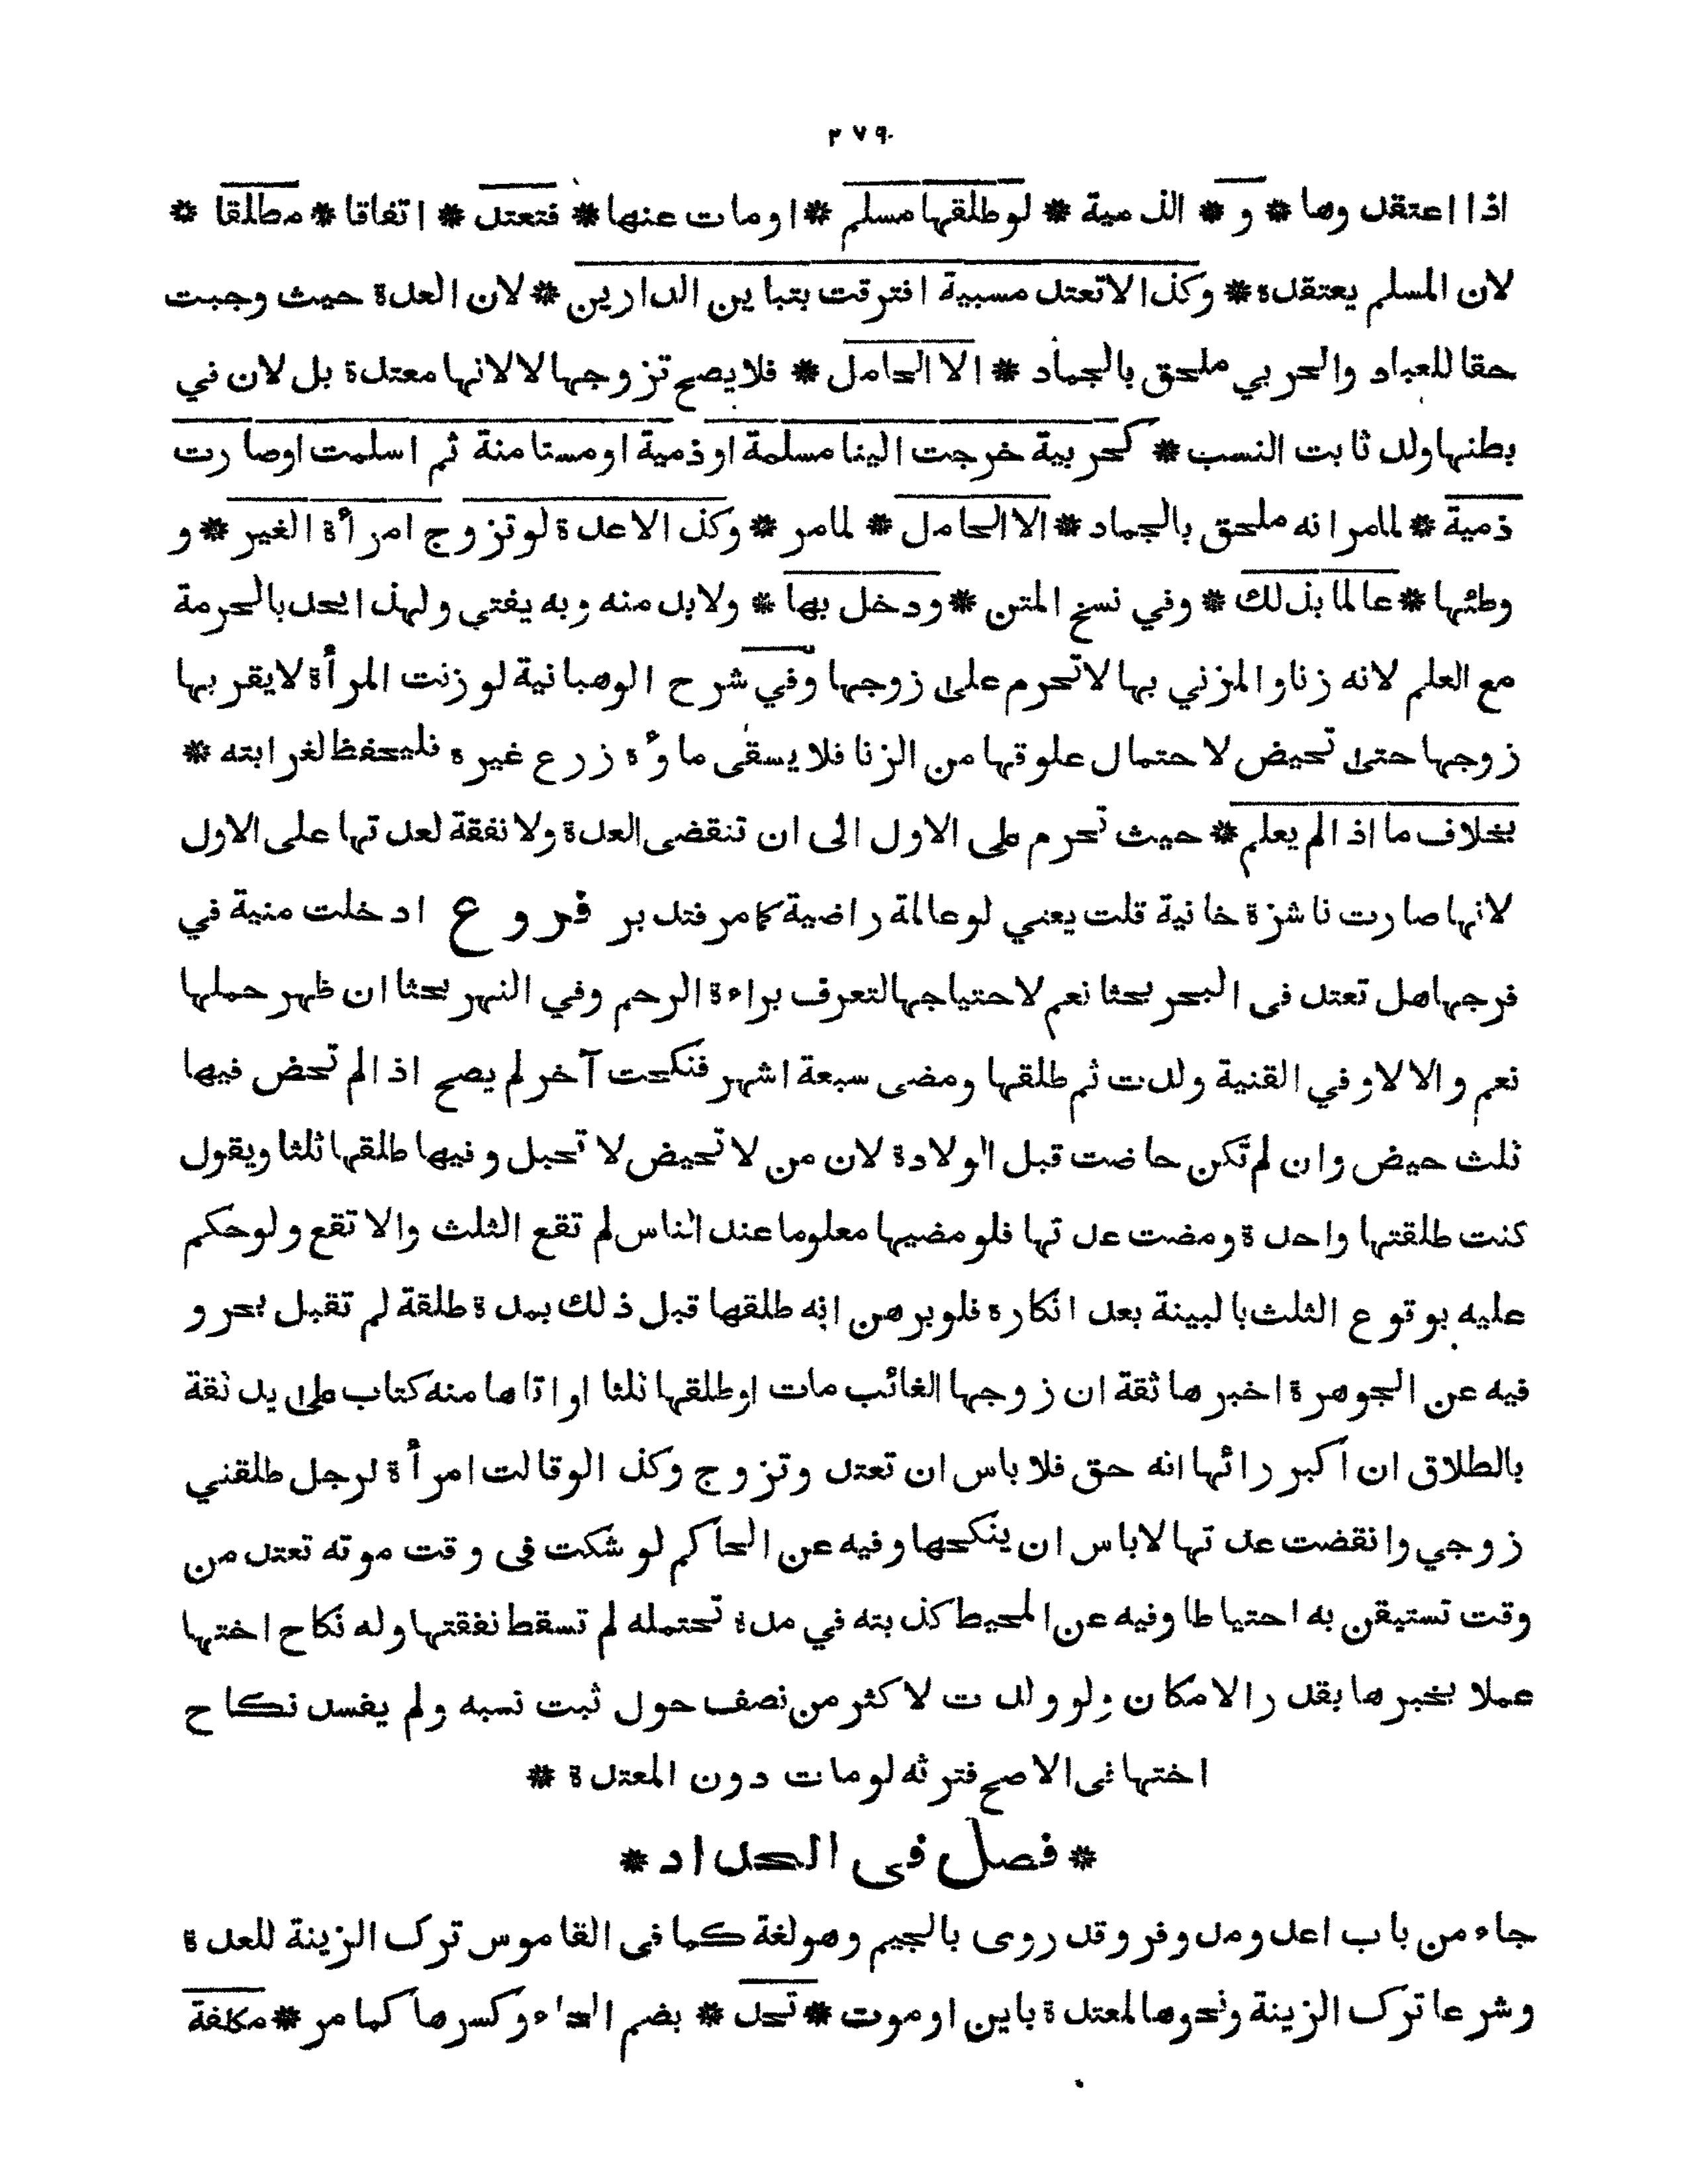 ٢٧٩
اذا اعتقدوها * و * الذمية * لو طلقها مسلم * او مات عنها * فتعتد * اتفاقا * مطلقا *
لان المسلم يعتقده * وكذا لا تعتد مسبية افترقت بتباين الدارين * لان العدة حيث وجبت
حقا للعباد والحربي ملحق بالجماد * الا الحامل * فلا يصح تزوجها لا لانها معتدة بل لان في
بطنها ولد ثابت النسب * كحربية خرجت الينا مسلمة او ذمية او مستامنة ثم اسلمت او صارت
ذمية * لما مر انه ملحق بالجماد * الا الحامل * لما مر * وكذا لا عدة لو تزوج امرأة الغير * و
وطئها * عالما بذلك * وفي نسخ المتن * ودخل بها * ولابد منه وبه يفتي ولهذا يحد بالحرمة
مع العلم لانه زنا والمزني بها لا تحرم على زوجها وفي شرح الوهبانية لو زنت المرأة لا يقربها
زوجها حتى تحيض لاحتمال علوقها من الزنا فلا يسقى ماؤه زرع غيره فليحفظ لغرابته *
بخلاف ما اذا لم يعلم * حيث تحرم على الاول الى ان تنقضى العدة ولا نفقة لعدتها على الاول
لانها صارت ناشزة خانية قلت يعني لو عالمة راضية كما مر فتدبر فروع ادخلت منية في
فرجها هل تعتد فى البحر بحثا نعم لاحتياجها لتعرف براءة الرحم وفي النهر بحثا ان ظهر حملها
نعم والا لا وفي القنية ولدت ثم طلقها ومضى سبعة اشهر فنكحت آخر لم يصح اذا لم تحض فيها
ثلث حيض وان لم تكن حاضت قبل الولادة لان من لا تحيض لا تحبل وفيها طلقها ثلثا ويقول
كنت طلقتها واحدة ومضت عدتها فلو مضيها معلوما عند الناس لم تقع الثلث والا تقع ولو حكم
عليه بوقوع الثلث بالبينة بعد انكاره فلو برهن انه طلقها قبل ذلك بمدة طلقة لم تقبل بحر و
فيه عن الجوهرة اخبرها ثقة ان زوجها الغائب مات او طلقها ثلثا او اتاها منه كتاب على يد ثقة
بالطلاق ان اكبر رائها انه حق فلا باس ان تعتد وتزوج وكذا لو قالت امرأة لرجل طلقني
زوجي وانقضت عدتها لا باس ان ينكحها وفيه عن الحاكم لو شكت فى وقت موته تعتد من
وقت تستيقن به احتياطا وفيه عن المحيط كذبته في مدة تحتمله لم تسقط نفقتها وله نكاح اختها
عملا بخبرها بقدر الامكان ولو ولدت لاكثر من نصف حول ثبت نسبه ولم يفسد نكاح
اختها فى الاصح فترثه لو مات دون المعتدة *
* فصل فى الحداد *
جاء من باب اعد ومد وفر وقد روى بالجيم وهو لغة كما فى القاموس ترك الزينة للعدة
وشرعا ترك الزينة ونحوها لمعتدة باين او موت * تحد * بضم الحاء وكسرها كما مر * مكلفة